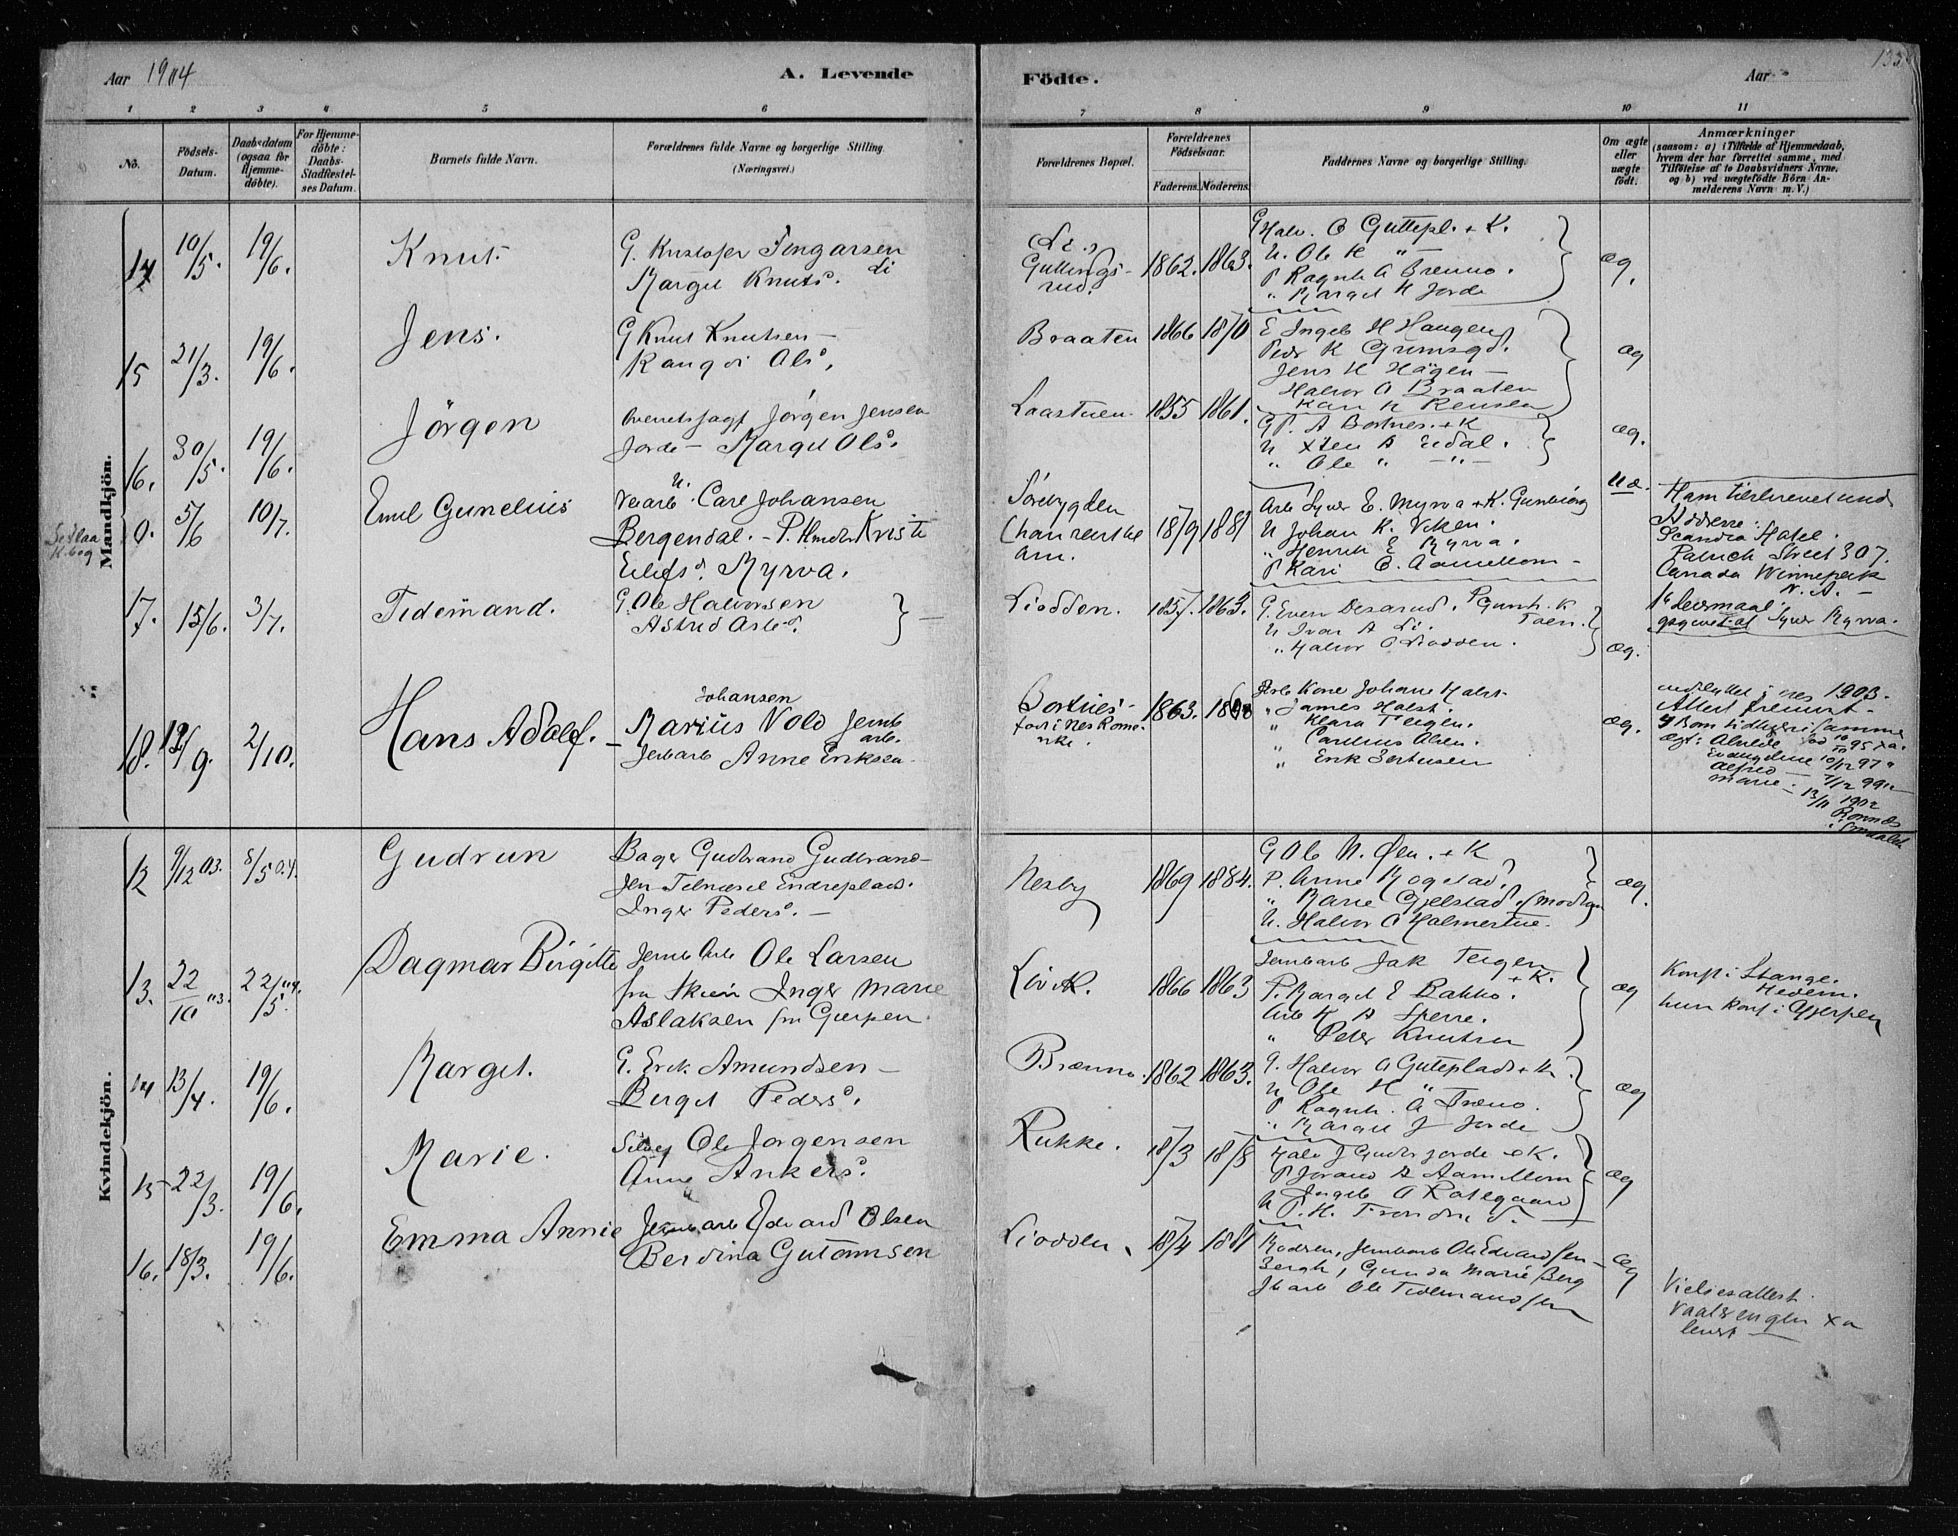 Aar 1904
A. Levende
Födte.
Aar
133
1 2 3 4 5 6
7 8 9 10 11
No.
Födsels-
Datum.
Daabsdatum
(ogsaa for
Hjemme-
döbte).
For Hjemme-
döbte:
Daabs-
Stadfæstel-
ses Datum.
Barnets fulde Navn.
Forældrenes fulde Navne og borgerlige Stilling.
(Næringsvei.)
Forældrenes Bopæl.
Forældrenes
Födselsaar.
Faderens. Moderens.
Faddernes Navne og borgerlige Stilling.
Om ægte
eller
uægte
födt.
Anmærkninger
(saasom: a) i Tilfælde af Hjemmedaab,
hvem der har forrettet samme, med
Tilföielse af to Daabsvidners Navne,
og b) ved uægtefödte Börn An-
melderens Navn m. V.)
Mandkjön.
14 10/5. 19/6. Knut.
G. Kristofer Ingarsen
Li
Margit Knuts.
Li
Gullings-
rud.
1862. 1863.
Halv. O Guttepl. + K.
U. Ole H "
P Ragnh A Brenno.
" Margit H Jorde
æg.
15 21/3. 19/6. Jens.
G Knut Knutsen -
Rangdi Ols.
Braaten 1866 1870
E Ingeb H Haugen
Peder K Grimsgd.
Jens H Hågen -
Halvor O Braaten
Kari K Rensen
æg
16. 30/5. 19/6. Jörgen
Jörgen Jensen
Jorde - Margit Ols.
Laastuen. 1855 1861.
GP. A Bortnes. + K
U Xten A Eidal.
" Ole " - " -
æg.
0. 5/6 10/7. Emil Gunelius
U.
Carl Johansen
Bergendal. - P. Kristi
Eilefs. Myrva.
Sörebygden
1879 1881
Arb Syver E. Myrva + K. Gunbiörg
U Johan K. Viken.
" Henrik E Myrva.
P Kari E. Aamellom -
uæ.
Ham tilskrevet und
Adderse:
Scandia Hotel.
Patrick Street 307.
Canada Winnepeck
N. A. -
opgivet af Syver Myrva.
17. 15/6. 3/7. Tidemand.
G. Ole Halvorsen
Astrid Asle.
Liodden. 1857. 1863.
G. Even Desarud. P Gunh. K
Toen.
U Ivar A Li.
" Halvor O Liodden.
æg.
18. 12/9. 2/10. Hans Adolf. -
Johansen
Marius Vold Jernb
arb.
Anne Eriksen
Bortnes-
1863.
Arb Kone Johane Halst
" James Halst.
" Klara Teigen.
" Carelius Olsen.
" Erik Sertusen
æg.
indflyttet i nes 1903.
Attest fremvist -
Alfred - 7/12 99
Marie - 13/11 1902
Kvindekjön.
12 9/12 03. 8/5 04. Gudrun
Bager Gudbrand Gudbrand-
sen Endreplads.
Inger Peders. -
Nesby 1869 1884.
G Ole N. Øen. + K
P. Anne Rogstad.
" Marie Gjelstad
U. Halvor O Halmertue.
æg.
13. 22/10 03. 22/5 04. Dagmar Birgitte
Jernb Arb Ole Larsen
fra Skien Inger Marie
Aslaksen fra Gjerpen
Livik. 1866 1863
Jernbarb Jak Teigen
+ K.
P. Margit E Bakko.
Arb K A Sperre.
" Peter Knutsen
æg
Konf i Stange.
Hedem.
hun konf i Gjerpen
14 13/4. 19/6. Margit.
G. Erik Amundsen -
Bergit Peders.
Brænno. 1862 1863.
G. Halvor O Guteplads + K.
U Ole H "
P Ragnh. A Breno.
" Margit J Jorde
æg
15 22/3. 19/6. Marie.
Ole Jorgensen
Anne Ankers.
Rukke. 1873 1878
Halv J Gudbrjorde + K.
P Jorand A Aamellom
" Ingeb A Rotegaard
U P. H. Trondrud. -
æg
16. 18/3. 19/6. Emma Annie
Jernbarb Edvard Olsen
Berdina Gutormsen
Liodden. 1874 1881
Modren, Jernbarb Ole Edvardsen -
Bergh, Gunda Marie Berg
Jbarb Ole Tidemandsen
æg
Vielsesattest
Vaalerengen Xa
levert